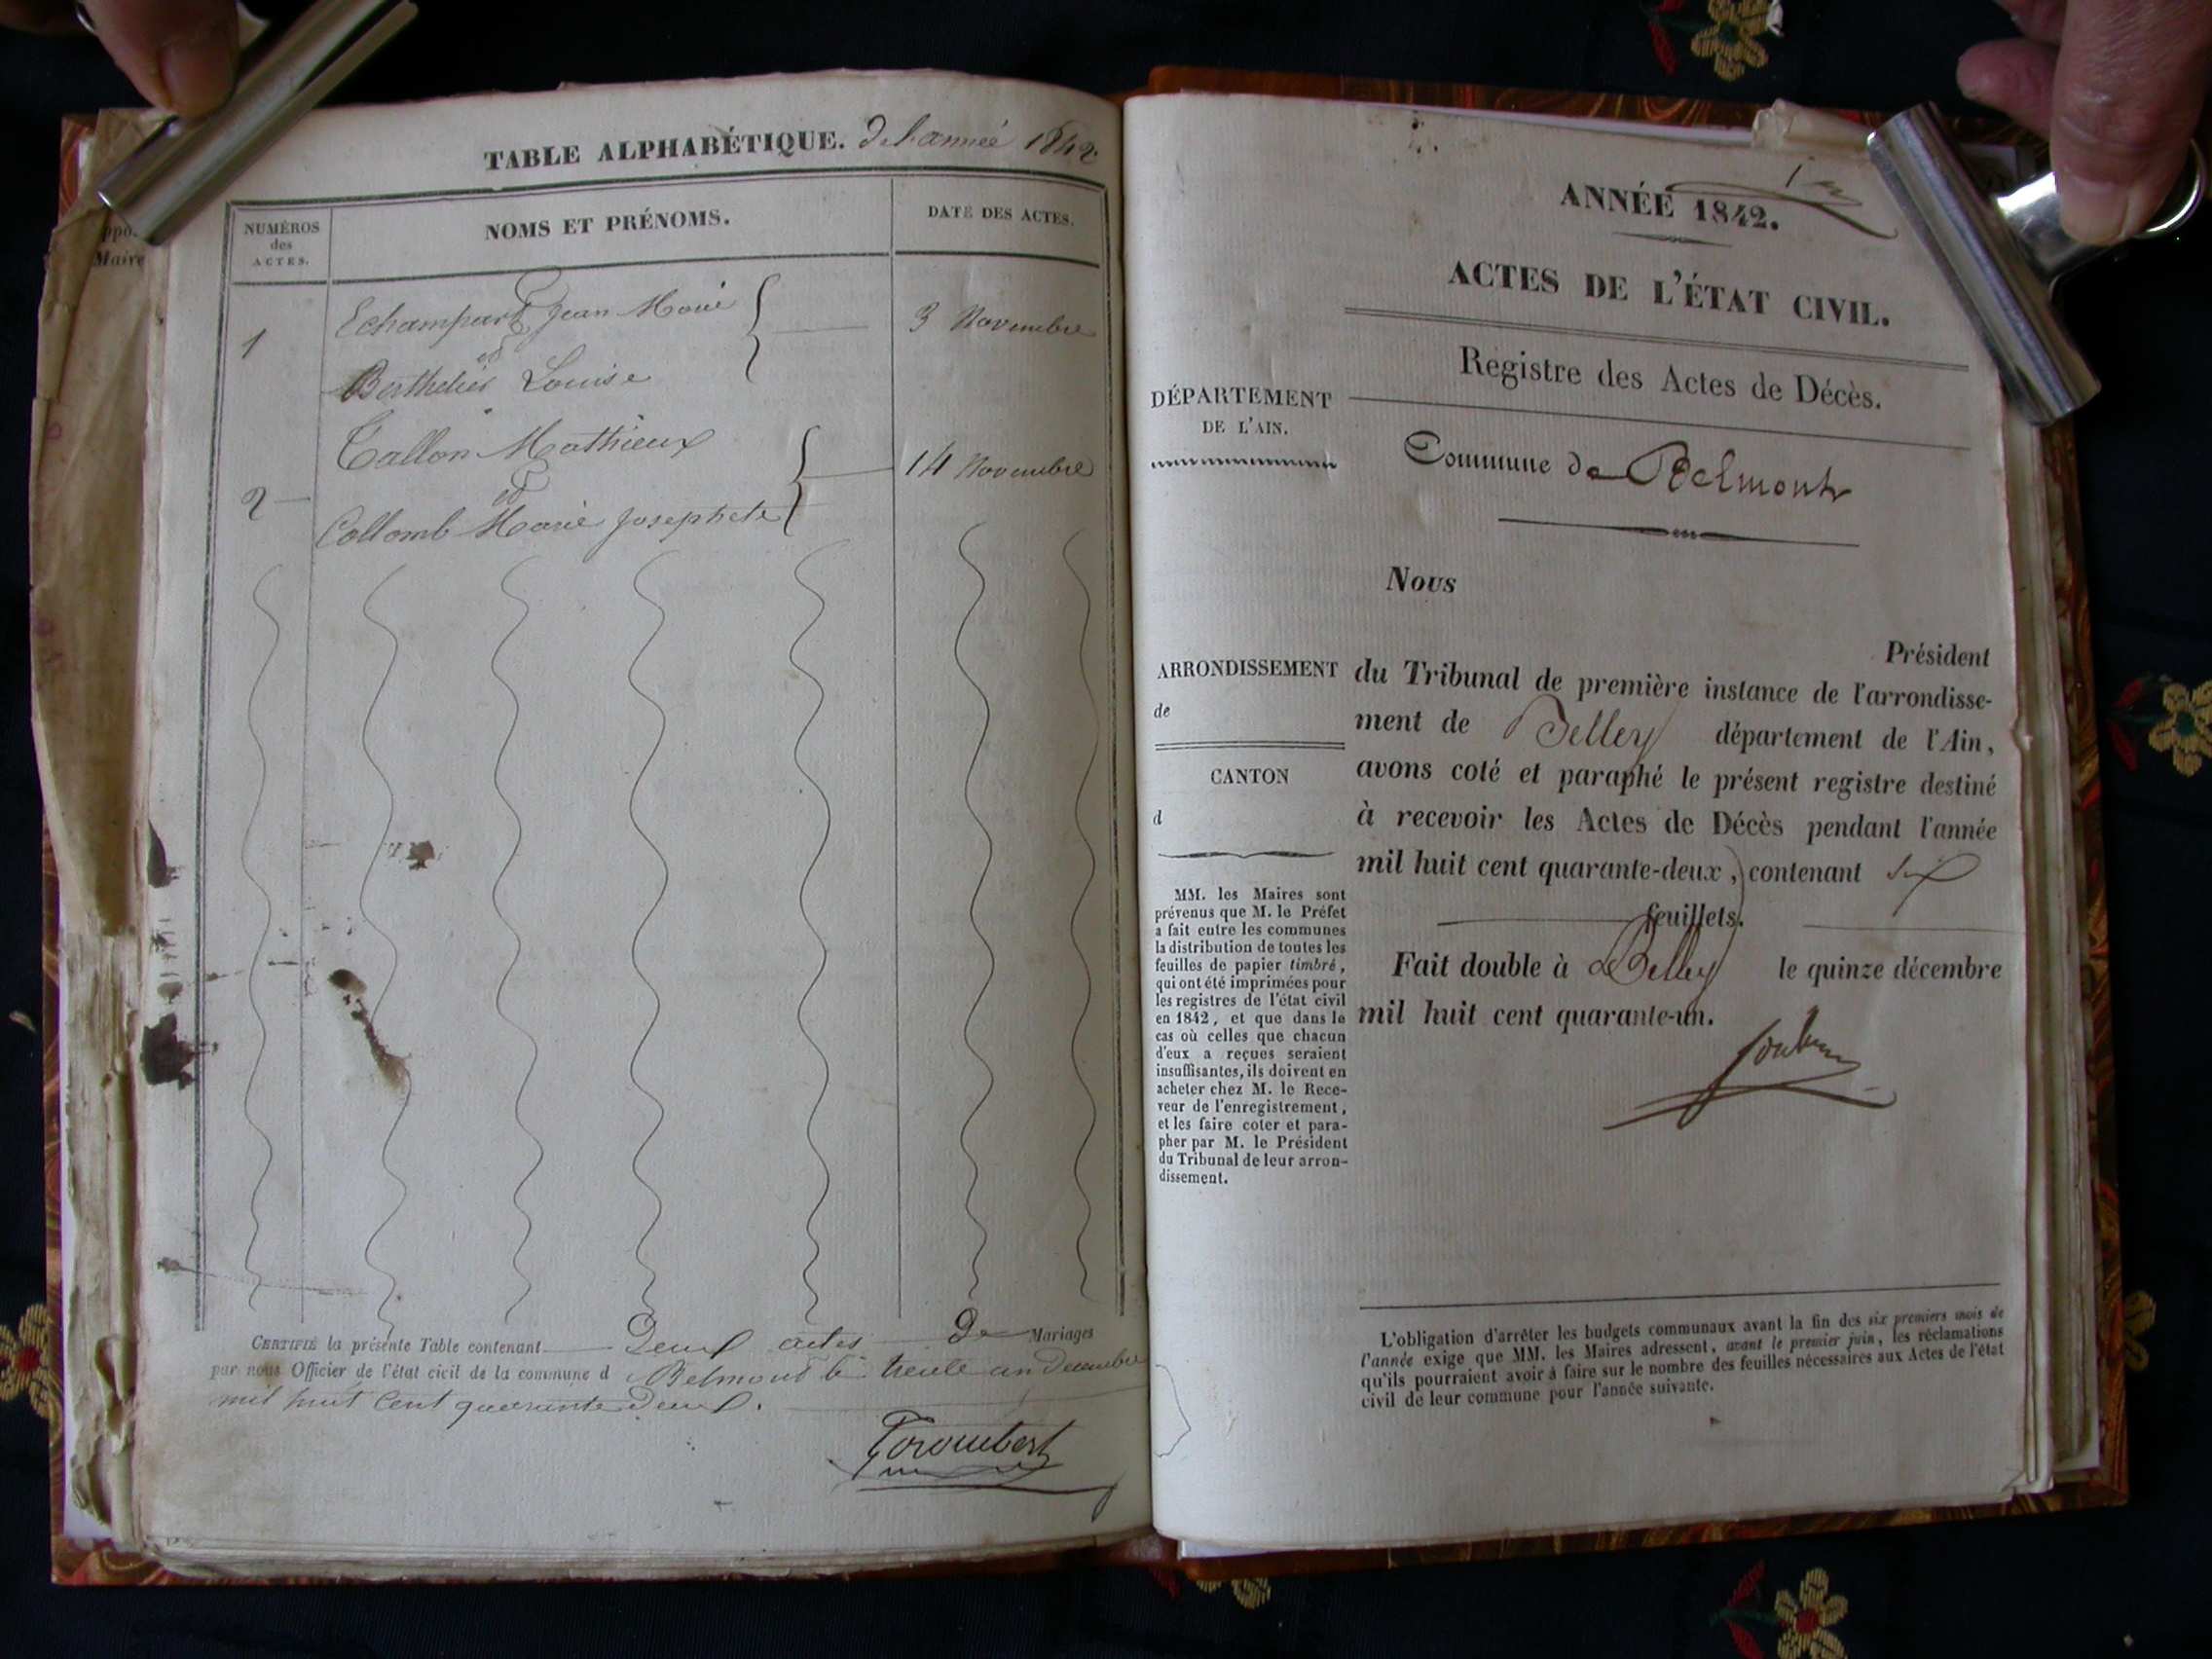 TABLE ALPHABÉTIQUE. de l'année 1842
NUMÉROS
des
ACTES.
NOMS ET PRÉNOMS.
DATE DES ACTES.
Maire
1
Echampard Jean
3 Novembre
et
Berthelier Louise
Tallon Mathieux
2
14 Novembre
et
Collomb Marie Josephete
CERTIFIÉ la présente Table contenant Deux actes De Mariages
par nous Officier de l'état civil de la commune d Belmont le trente un Decembre
mil huit Cent quarante Deux.
Trombert
1er
ANNÉE 1842.
ACTES DE L'ÉTAT CIVIL.
Registre des Actes de Décès.
DÉPARTEMENT
DE L'AIN.
Commune de Belmont
Nous
Président
ARRONDISSEMENT
de
CANTON
d
du Tribunal de première instance de l'arrondisse-
ment de Belley département de l'Ain,
avons coté et paraphé le présent registre destiné
à recevoir les Actes de Décès pendant l'année
mil huit cent quarante-deux, contenant six
feuillets.
Fait double à Belley le quinze décembre
mil huit cent quarante-un.
MM. les Maires sont
prévenus que M. le Préfet
a fait entre les communes
la distribution de toutes les
feuilles de papier timbré,
qui ont été imprimées pour
les registres de l'état civil
en 1842, et que dans le
cas où celles que chacun
d'eux a reçues seraient
insuffisantes, ils doivent en
acheter chez M. le Rece-
veur de l'enregistrement,
et les faire coter et para-
pher par M. le Président
du Tribunal de leur arron-
dissement.
L'obligation d'arrêter les budgets communaux avant la fin des six premiers mois de
l'année exige que MM. les Maires adressent, avant le premier juin, les réclamations
qu'ils pourraient avoir à faire sur le nombre des feuilles nécessaires aux Actes de l'état
civil de leur commune pour l'année suivante.